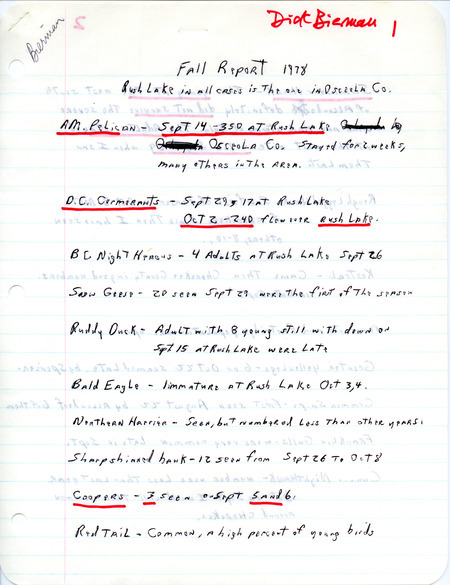 Dick Bierman 1
Bierman
Fall Report 1978
Rush Lake in all cases is the one in Osceola Co.
AM. Pelican - Sept 14 - 350 at Rush Lake
Osceola Co. Stayed for 2 weeks,
many others in the area.
D.C. Cormorants - Sept 29 217 at Rush Lake
Oct 2 - 240 flew over Rush Lake.
BC Night Herons - 4 Adults at Rush Lake Sept 26
Snow Geese - 20 seen Sept 29 were the first of the season
Ruddy Duck - Adult with 8 young still with down on
Sept 15 at Rush Lake were late
Bald Eagle - Immature at Rush Lake Oct 3,4.
Northern Harrier - Seen, but numbered less than other years.
Sharpshinned hawk - 12 seen from Sept 26 to Oct 8
Coopers - 3 seen Sept 5 and 6.
Red Tail - Common, a high percent of young birds